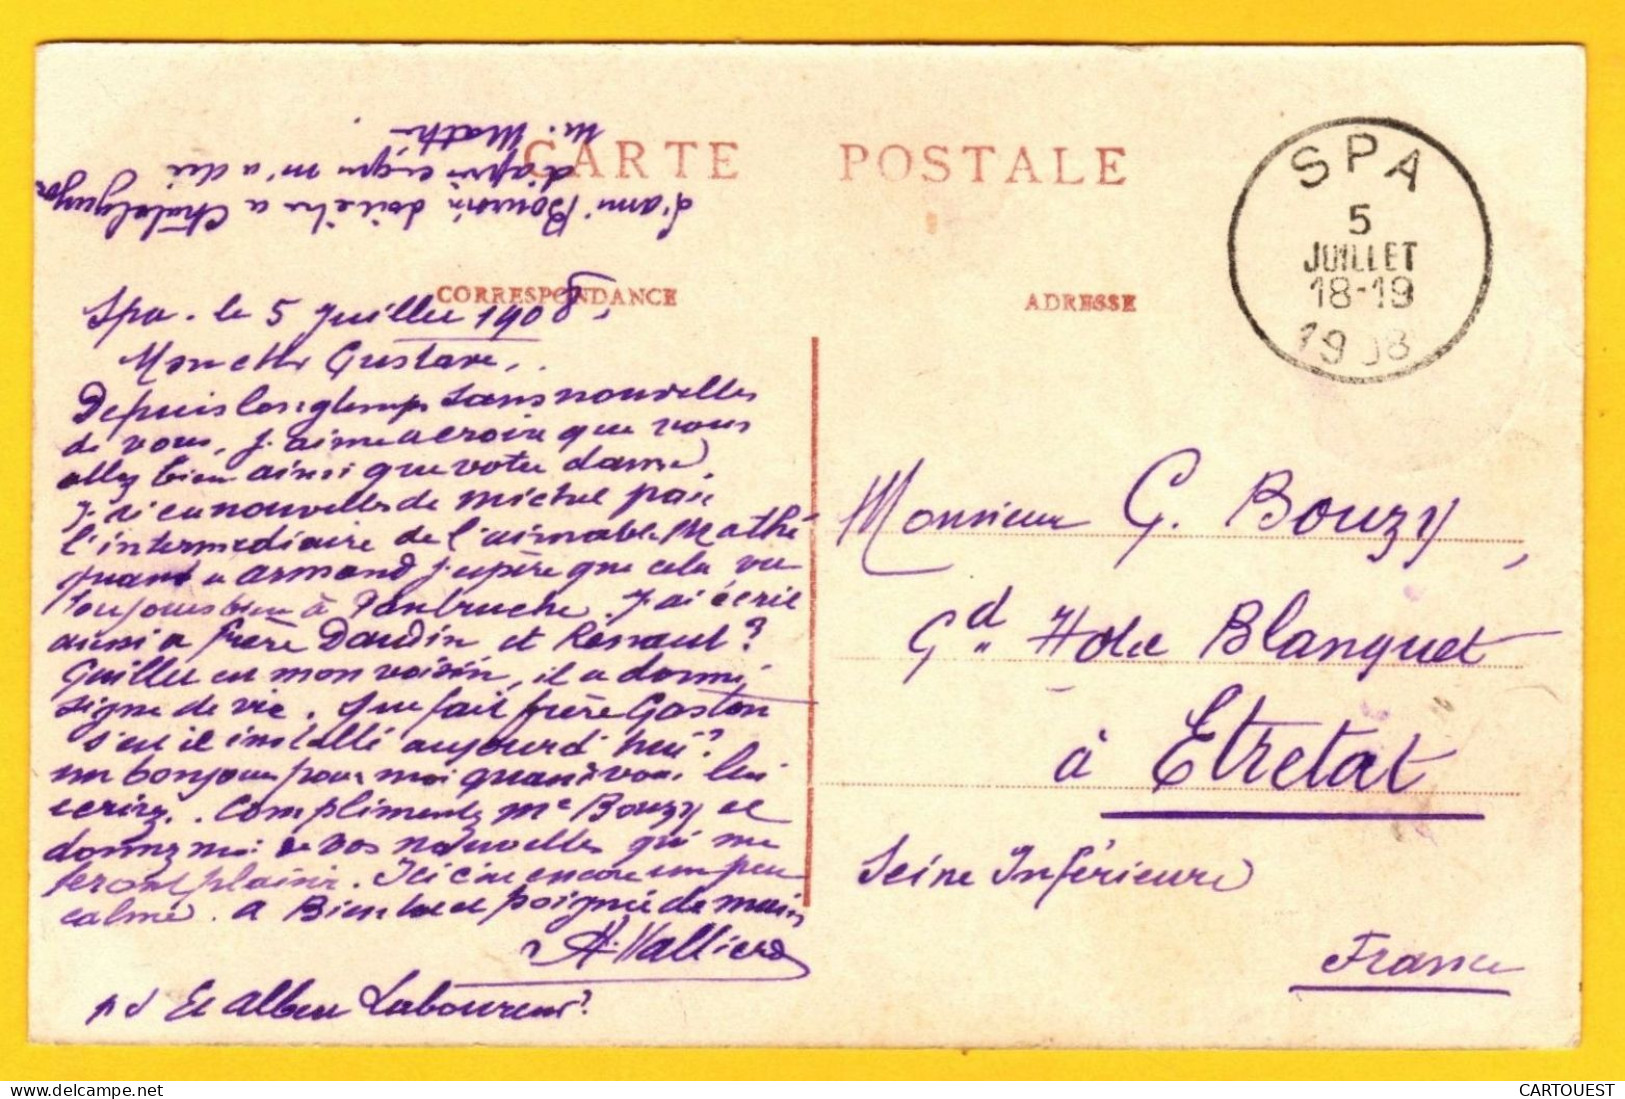 CARTE POSTALE
CORRESPONDANCE
ADRESSE
SPA
5
JUILLET
18-19
1908
L'ami Bourin doit être a
d'après ce qui m'a dit
M. Mathé.
Spa. le 5 Juillet 1908.
Mon cher Gustave,
Depuis longtemps sans nouvelles
de vous, j'aime a croire que vous
allez bien ainsi que votre dame,
J'ai eu nouvelles de Michel par
l'intermediaire de l'aimable Mathé
quant a Armand j'espère que cela va
toujours bien à J'ai écrit
aussi a frère Daudin et Renaut?
Guillu est mon voisin, il a donné
signe de vie. Que fait frère Gaston
s'est il installé aujourd'hui?
un bonjour pour moi quand vous lui
écrirez. Compliments Me Bouzy et
donnez moi de vos nouvelles qui me
feront plaisir. Ici c'est encore un peu
calme. A Bientot et poignée de main
H. Valliere
ps Et Albert Laboureur?
Monsieur G. Bouzy,
Gd Hotel Blanquet
à Etretat
Seine Inférieure
France
delcampe.net
CARTOUEST